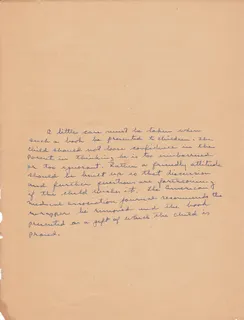 A little care must be taken when
such a book be presented to children. The
child should not lose confidence in the
Parent in thinking he is too embarrassed
or too ignorant. Rather a friendly attitude
should be built up so that discussion
and further question are forthcoming
if the child wishes it. The American
medical association journal recommends the
wrapper be removed and the book
presented as a gift of which the child is
proud.